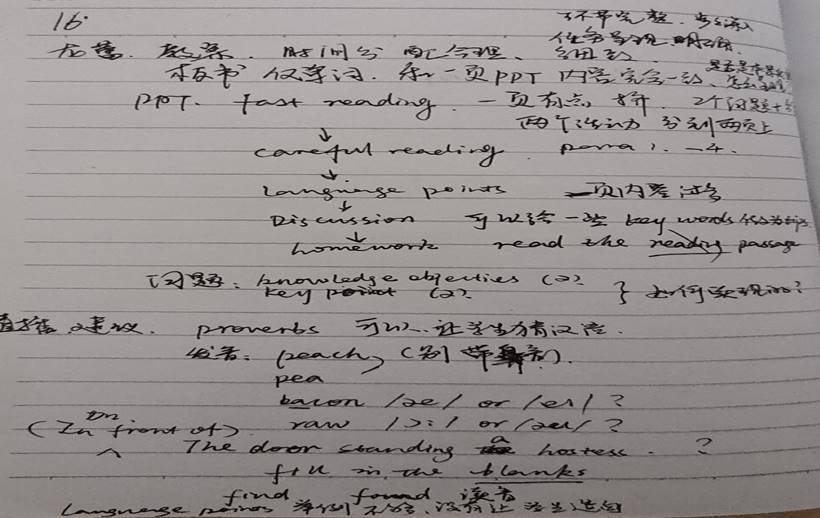 16.
教案. 时间分配合理、
板书 仅单词. 和一页PPT 内容完全一致、
PPT. fast reading. 一页有点挤. 2个问题
两个活动 分别两页上
↓
careful reading. para 1. -4.
↓
language points 一页内容过多
↓
Discussion 可以给一些 key words 作为tips
↓
homework read the reading passage
问题: knowledge objectives (2)
key point (2) } 如何实现的?
建议. proverbs 可以让学生猜汉语.
发音: peach,
pea
bacon /æ/ or /eɪ/ ?
raw /ɔ:/ or /
(In front of) The door standing a hostess. ?
fill in the blanks
find found 读音
Language points 举例不够, 没有让学生造句